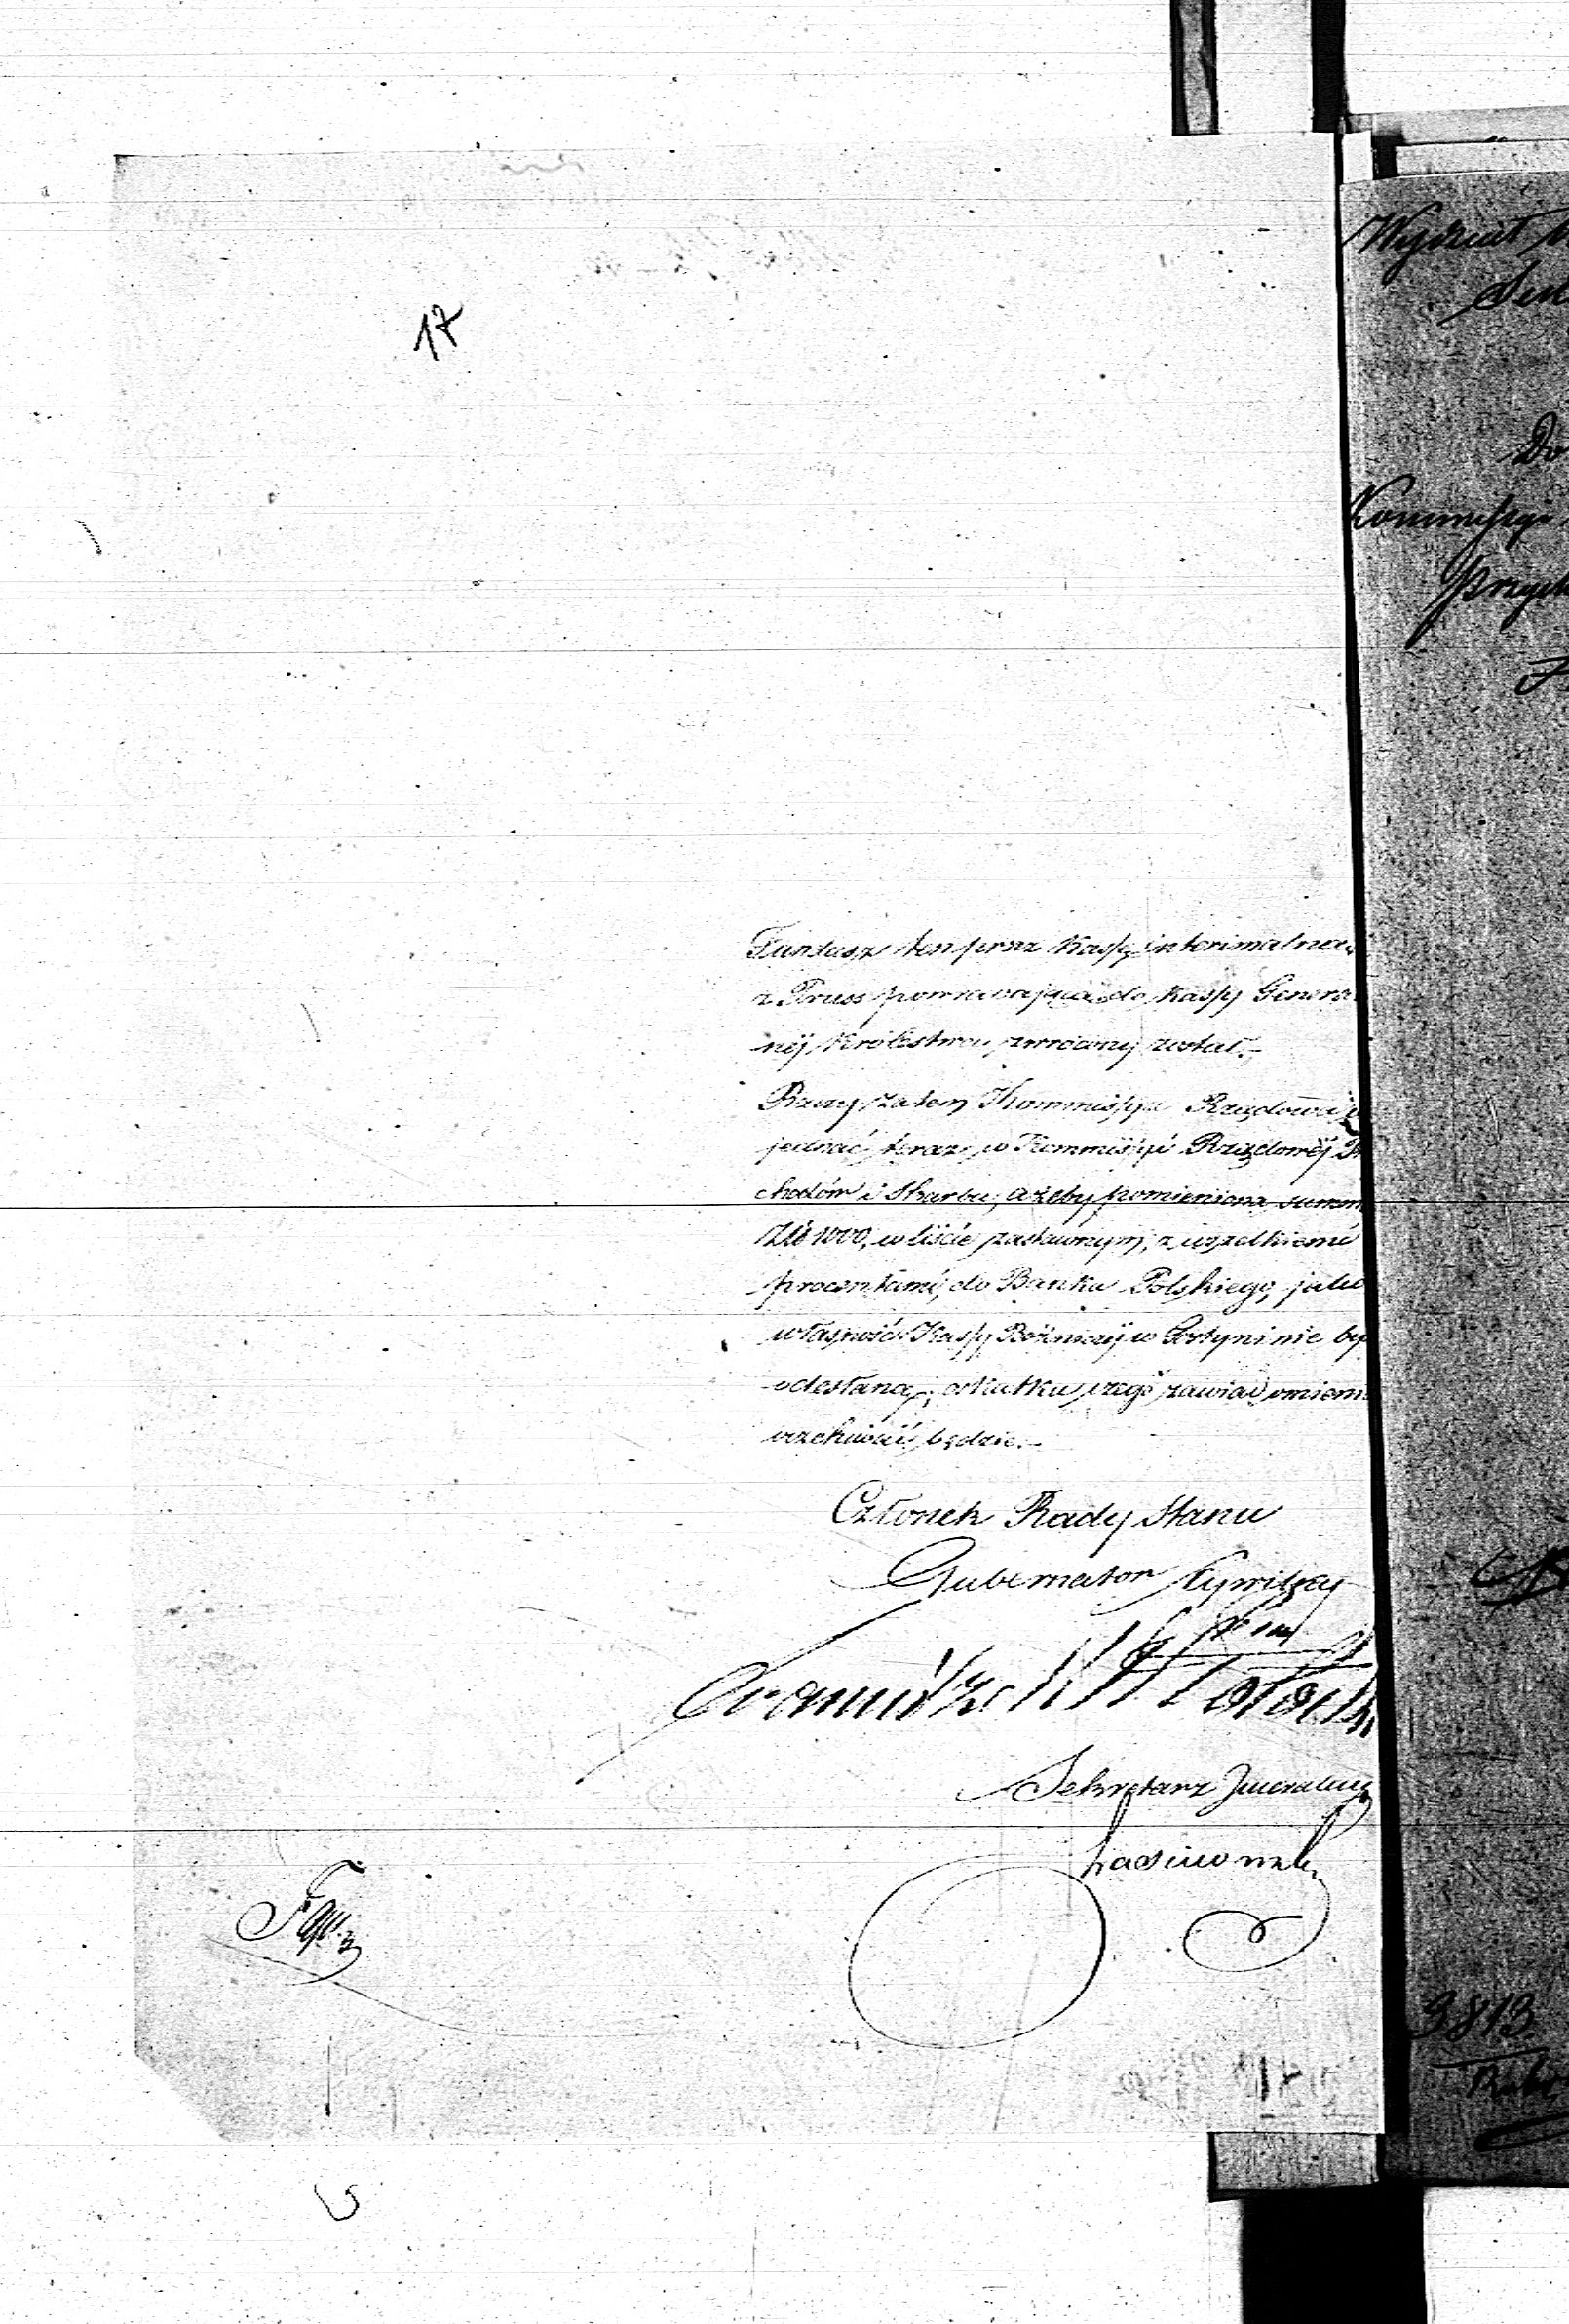 17
Fundusz ten przez Kassę interimalną
z Pruss powracającą do Kassy General
nej Królestwa zwrócony został.-
Raczy zatem Kommissya Rządowa
jednać teraz w Kommissyi Rządowej P
chodów i Skarbu, ażeby pomieniona summ
Złt 1000, w liście zastawnym, z wszelkiemi
procentami, do Banku Polskiego, jako
własność Kassy Bożniczej w Gostyninie by
odesłaną; o skutku czego zawiadomieni
oczekiwać będzie.-
Członek Rady Stanu
Gubernator Cywilny
Sekretarz Jeneralny
Wydział
Do
Kommissyi
Przych
3813